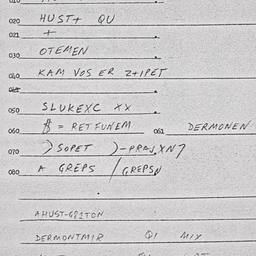 020 HUST+ QU
021 +
030 OTEMEN
040 KAM VOS ER Z+IPET
050 SLUKEXC XX
060 = RETFUNEM 061 DERMONEN
070 SOPET
080 A GREPS / GREPSN
AHUST-GPITON
DERMONTMIR QI MIX